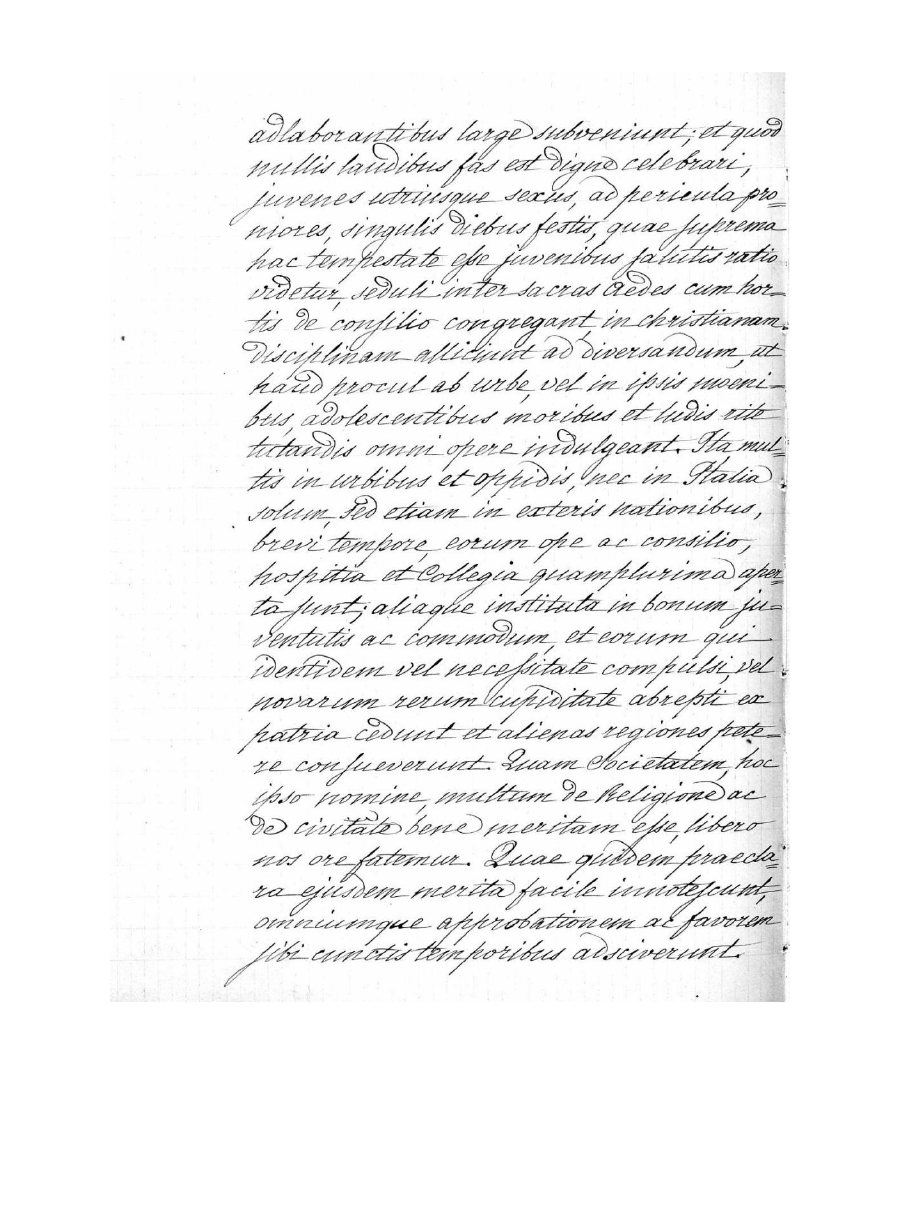 adlaborantibus large subveniunt; et quod
nullis laudibus fas est digne celebrari,
juvenes utriusque sexus, ad pericula pro=
niores, singulis diebus festis, quae suprema
hac tempestate esse juvenibus salutis ratio
videtur, seduli inter sacras aedes cum hor=
tis de consilio congregant, in christianam
disciplinam alliciunt ad diversandum, ut
haud procul ab urbe, vel in ipsis moeni=
bus, adolescentibus moribus et ludis rite
tutandis omni opere indulgeant. Ita mul=
tis in urbibus et oppidis, nec in Italia
solum, sed etiam in exteris nationibus,
brevi tempore, eorum ope ac consilio,
hospitia et Collegia quamplurima aper=
ta sunt; aliaque instituta in bonum ju=
ventutis ac commodum, et eorum qui
identidem vel necessitate compulsi, vel
novarum rerum cupiditate abrepti ex
patria cedunt et alienas regiones pete=
re consueverunt. Quam Societatem, hoc
ipso nomine, multum de Religione ac
de civitate bene meritam esse, libero
nos ore fatemur. Quae quidem praecla=
ra ejusdem merita facile innotescunt,
omniumque approbationem ac favorem
sibi cunctis temporibus adsciverunt.